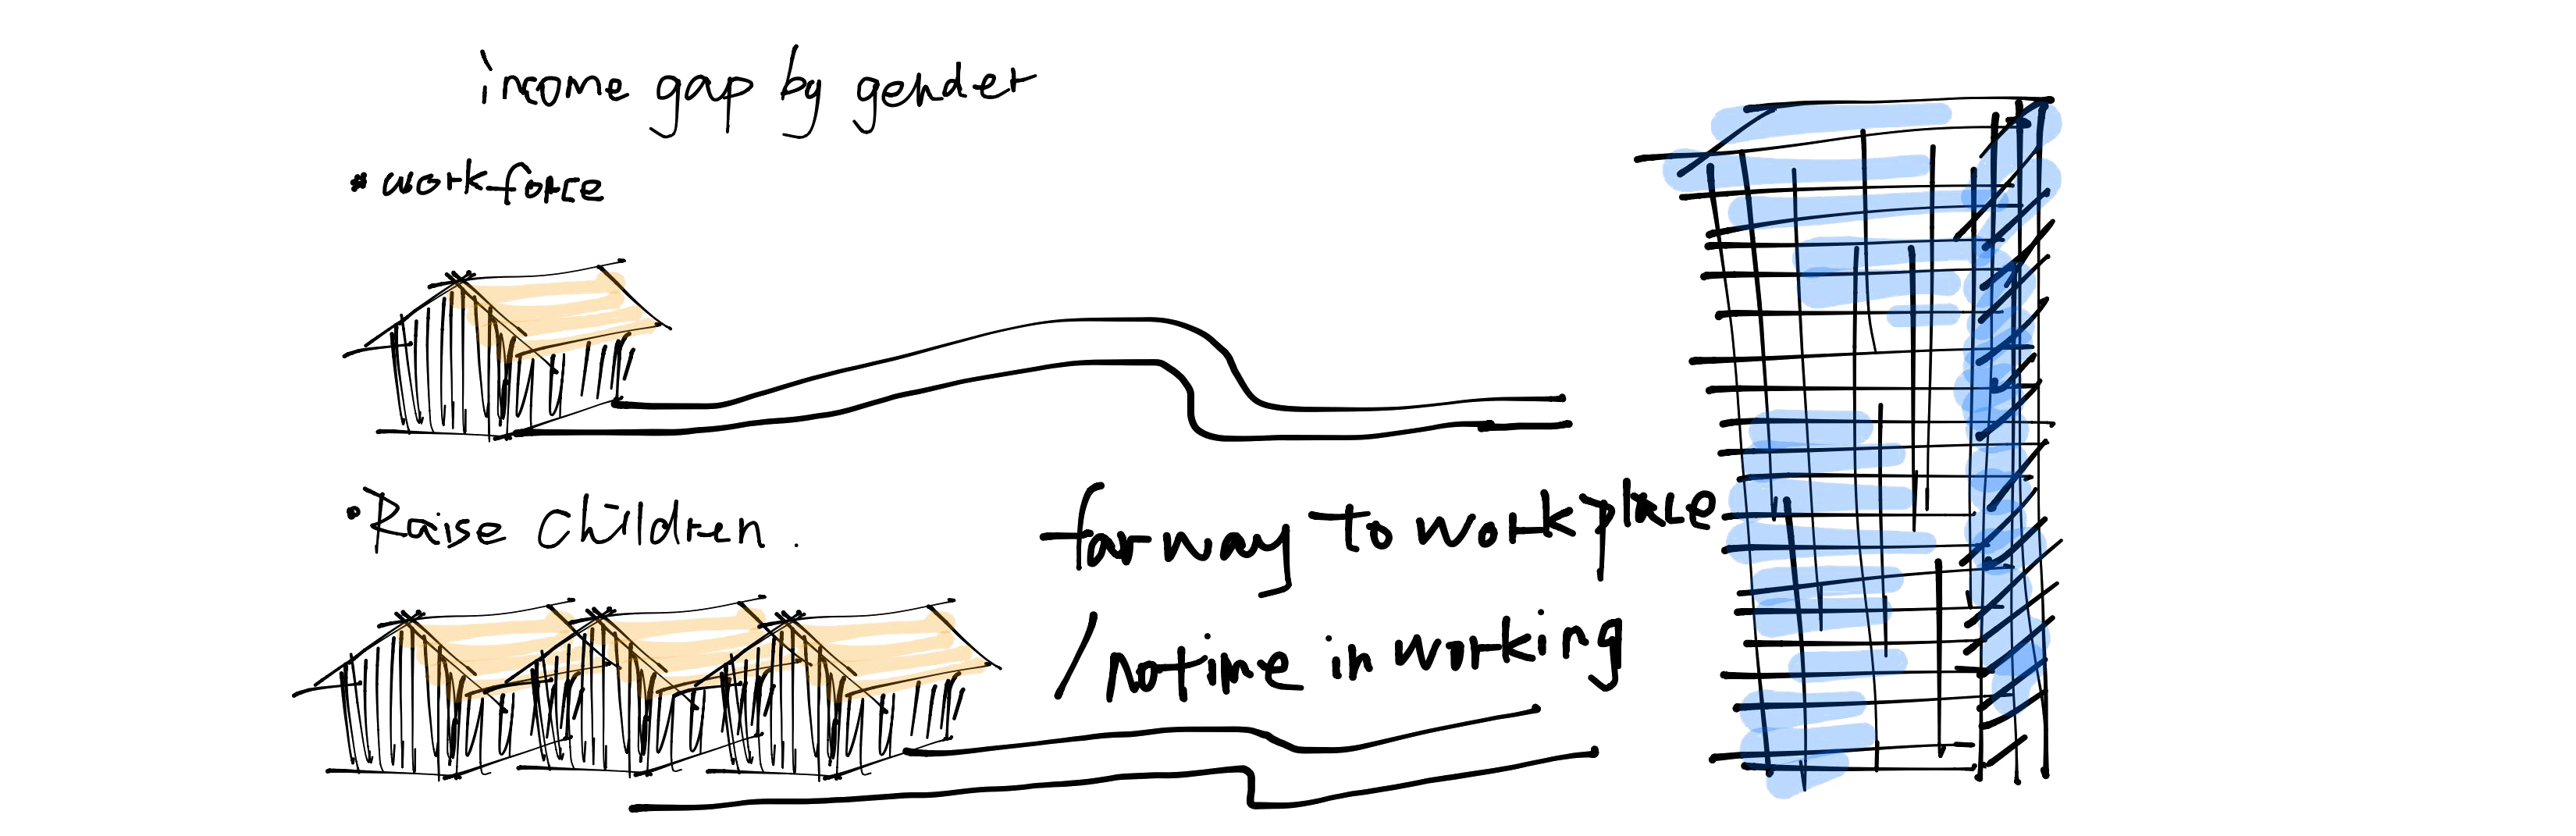 income gap by gender
• workforce
• Raise children.
far way to workplace
/ no time in working